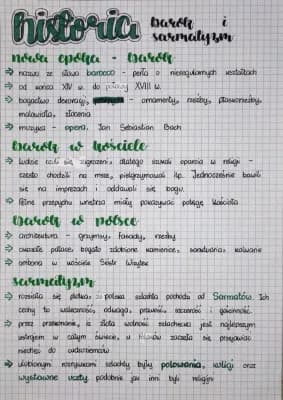 historia barok i
sarmatyzm
nowa epoka - barok
⇒ nazwa ze słowa barocco - perła o nieregularnych kształtach
⇒ od końca XIV w. do połowy XVIII w.
⇒ bogactwo dekoracji, - ornamenty, rzeźby, płaskorzeźby,
malowidła, złocenia
⇒ muzyka - opera, Jan Sebastian Bach
barok w kościele
⇒ ludzie czuli się zagrożeni, dlatego szukali oparcia w religii -
często chodzili na msze, pielgrzymowali itp. Jednocześnie bawili
się na imprezach i oddawali się bogu.
⇒ pełne przepychu wnętrza miały pokazywać potęgę kościoła
barok w polsce
⇒ architektura - gzymsy, fasady, rzeźby
⇒ okazałe pałace bogato zdobione kamienice, sanktuaria, kalwarie
⇒ ambona w kościele Sióstr Wizytek
sarmatyzm
⇒ rozeszła się plotka, że polska szlachta pochodzi od Sarmatów. Ich
cechy to waleczność, odwaga, prawość, szczerość i gościnność.
⇒ przez przekonanie, iż złota wolność szlachecka jest najlepszym
ustrojem w całym świecie, u Polaków zaczęła się przejawiać
niechęć do cudzoziemców
⇒ ulubionymi rozrywkami szlachty były polowania, kuligi oraz
wystawne uczty podobnie jak inni byli religijni